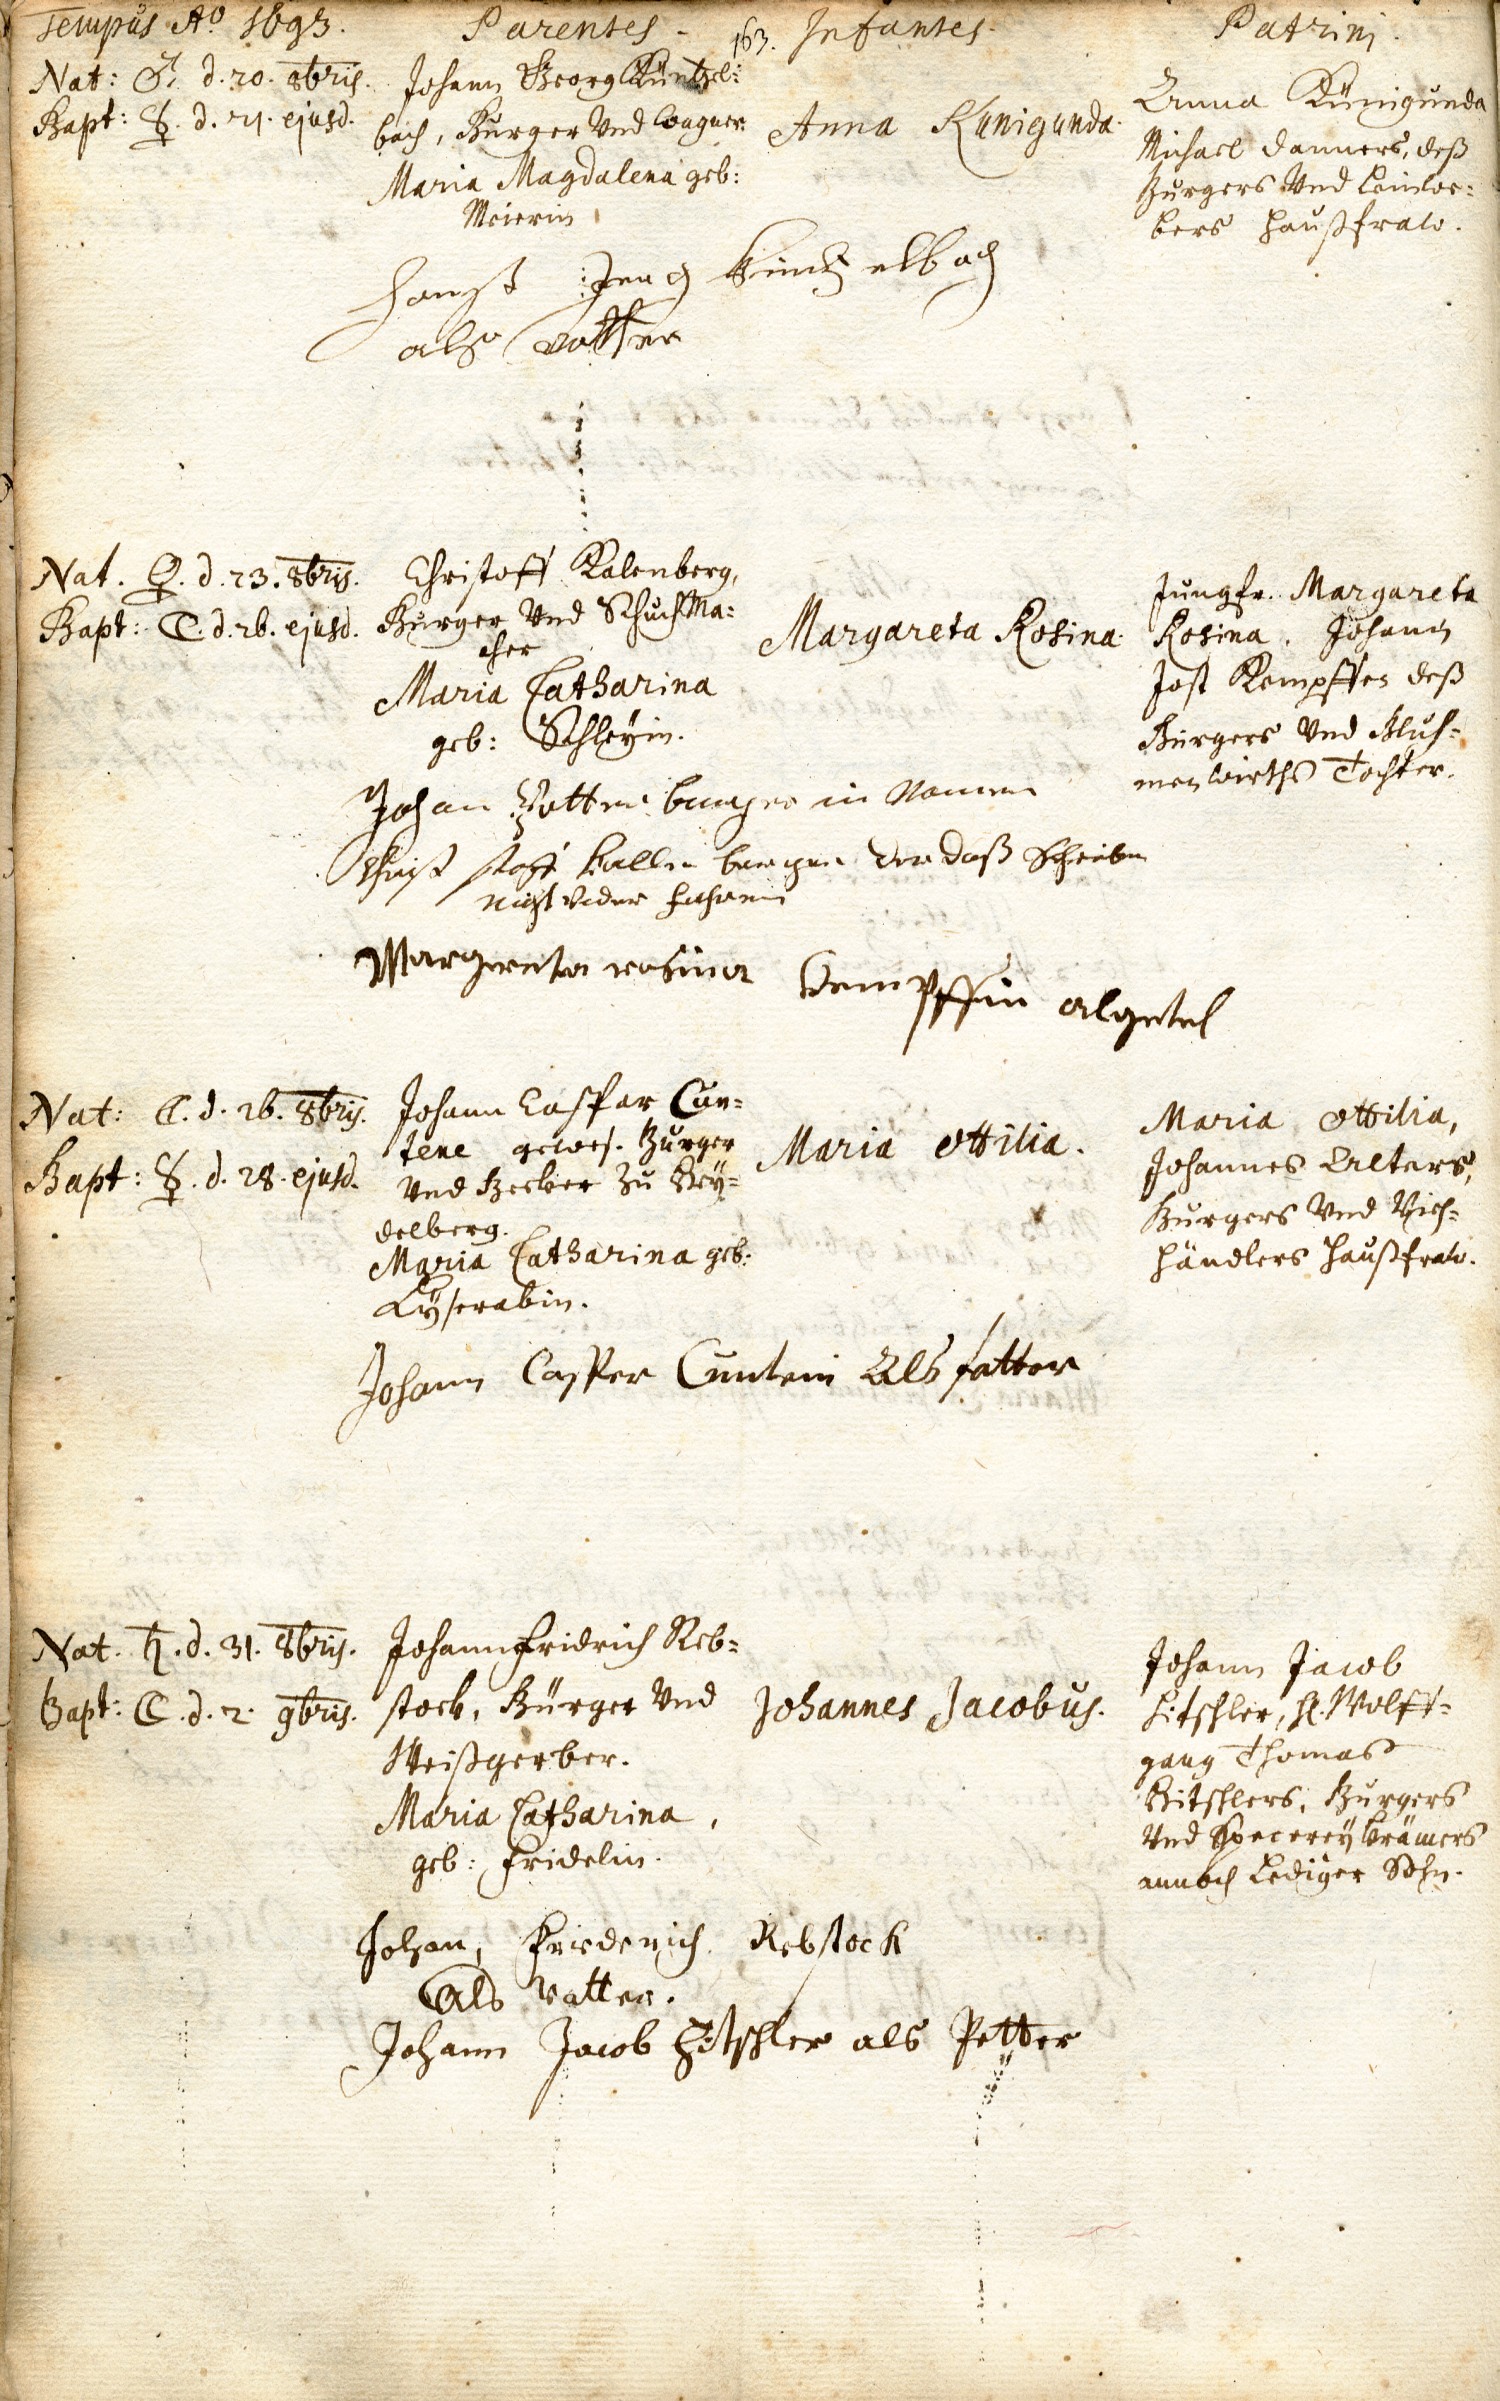 Tempus Aº 1693.
Parentes
163.
Infantes
Patrini
Nat: ♂. d. 20. 8bris.
Bapt: ☿. d. 21. ejusd.
Johann Georg Küntzel:
bach, Burger Vnd Wagner.
Maria Magdalena geb:
Meierin
Anna Kunigunda.
Anna Künigunda
Michael Danners, deß
Burgers Vnd Leinwe:
bers haußfraw.
Hanß Jerg Kintzelbach
alß vatter
Nat. ♀. d. 23. 8bris.
Bapt: ☾. d. 26. ejusd.
Christoff Kalenberg,
Burger Vnd Schuchma:
cher
Maria Catharina
geb: Schleÿin.
Margareta Rosina.
Jungfr. Margareta
Rosina. Johann
Jost Kempffen deß
Burgers Vnd Bluh=
men wirths Tochter.
Johan in Namen
daß Schreiben
nicht
Margreta rosina Kempffin
Nat: ☾. d. 26. 8bris.
Bapt: ☿. d. 28. ejusd.
Johann Caspar Cun=
tene gewes. Burger
Vnd Becker Zu Heÿ=
delberg.
Maria Catharina geb:
Maria Ottilia.
Maria Ottilia,
Johannes Alters,
Burgers Vnd Vieh=
händlers Haußfraw.
Johann Casper Cuntein Als fatter
Nat. ♄. d. 31. 8bris.
Bapt: ☾. d. 2. 9bris.
Johann Fridrich Reb=
stock, Bürger Vnd
Weißgerber.
Maria Catharina,
geb: Fridelin.
Johannes Jacobus.
Johann Jacob
Hitschler, H. Wolff=
gang Thomas
Hitschlers, Burgers
Vnd Specereÿ Krämers
annoch Lediger Sohn.
Johan, Friederich Rebstock
Als Vatter.
Johann Jacob Hitschler als Petter